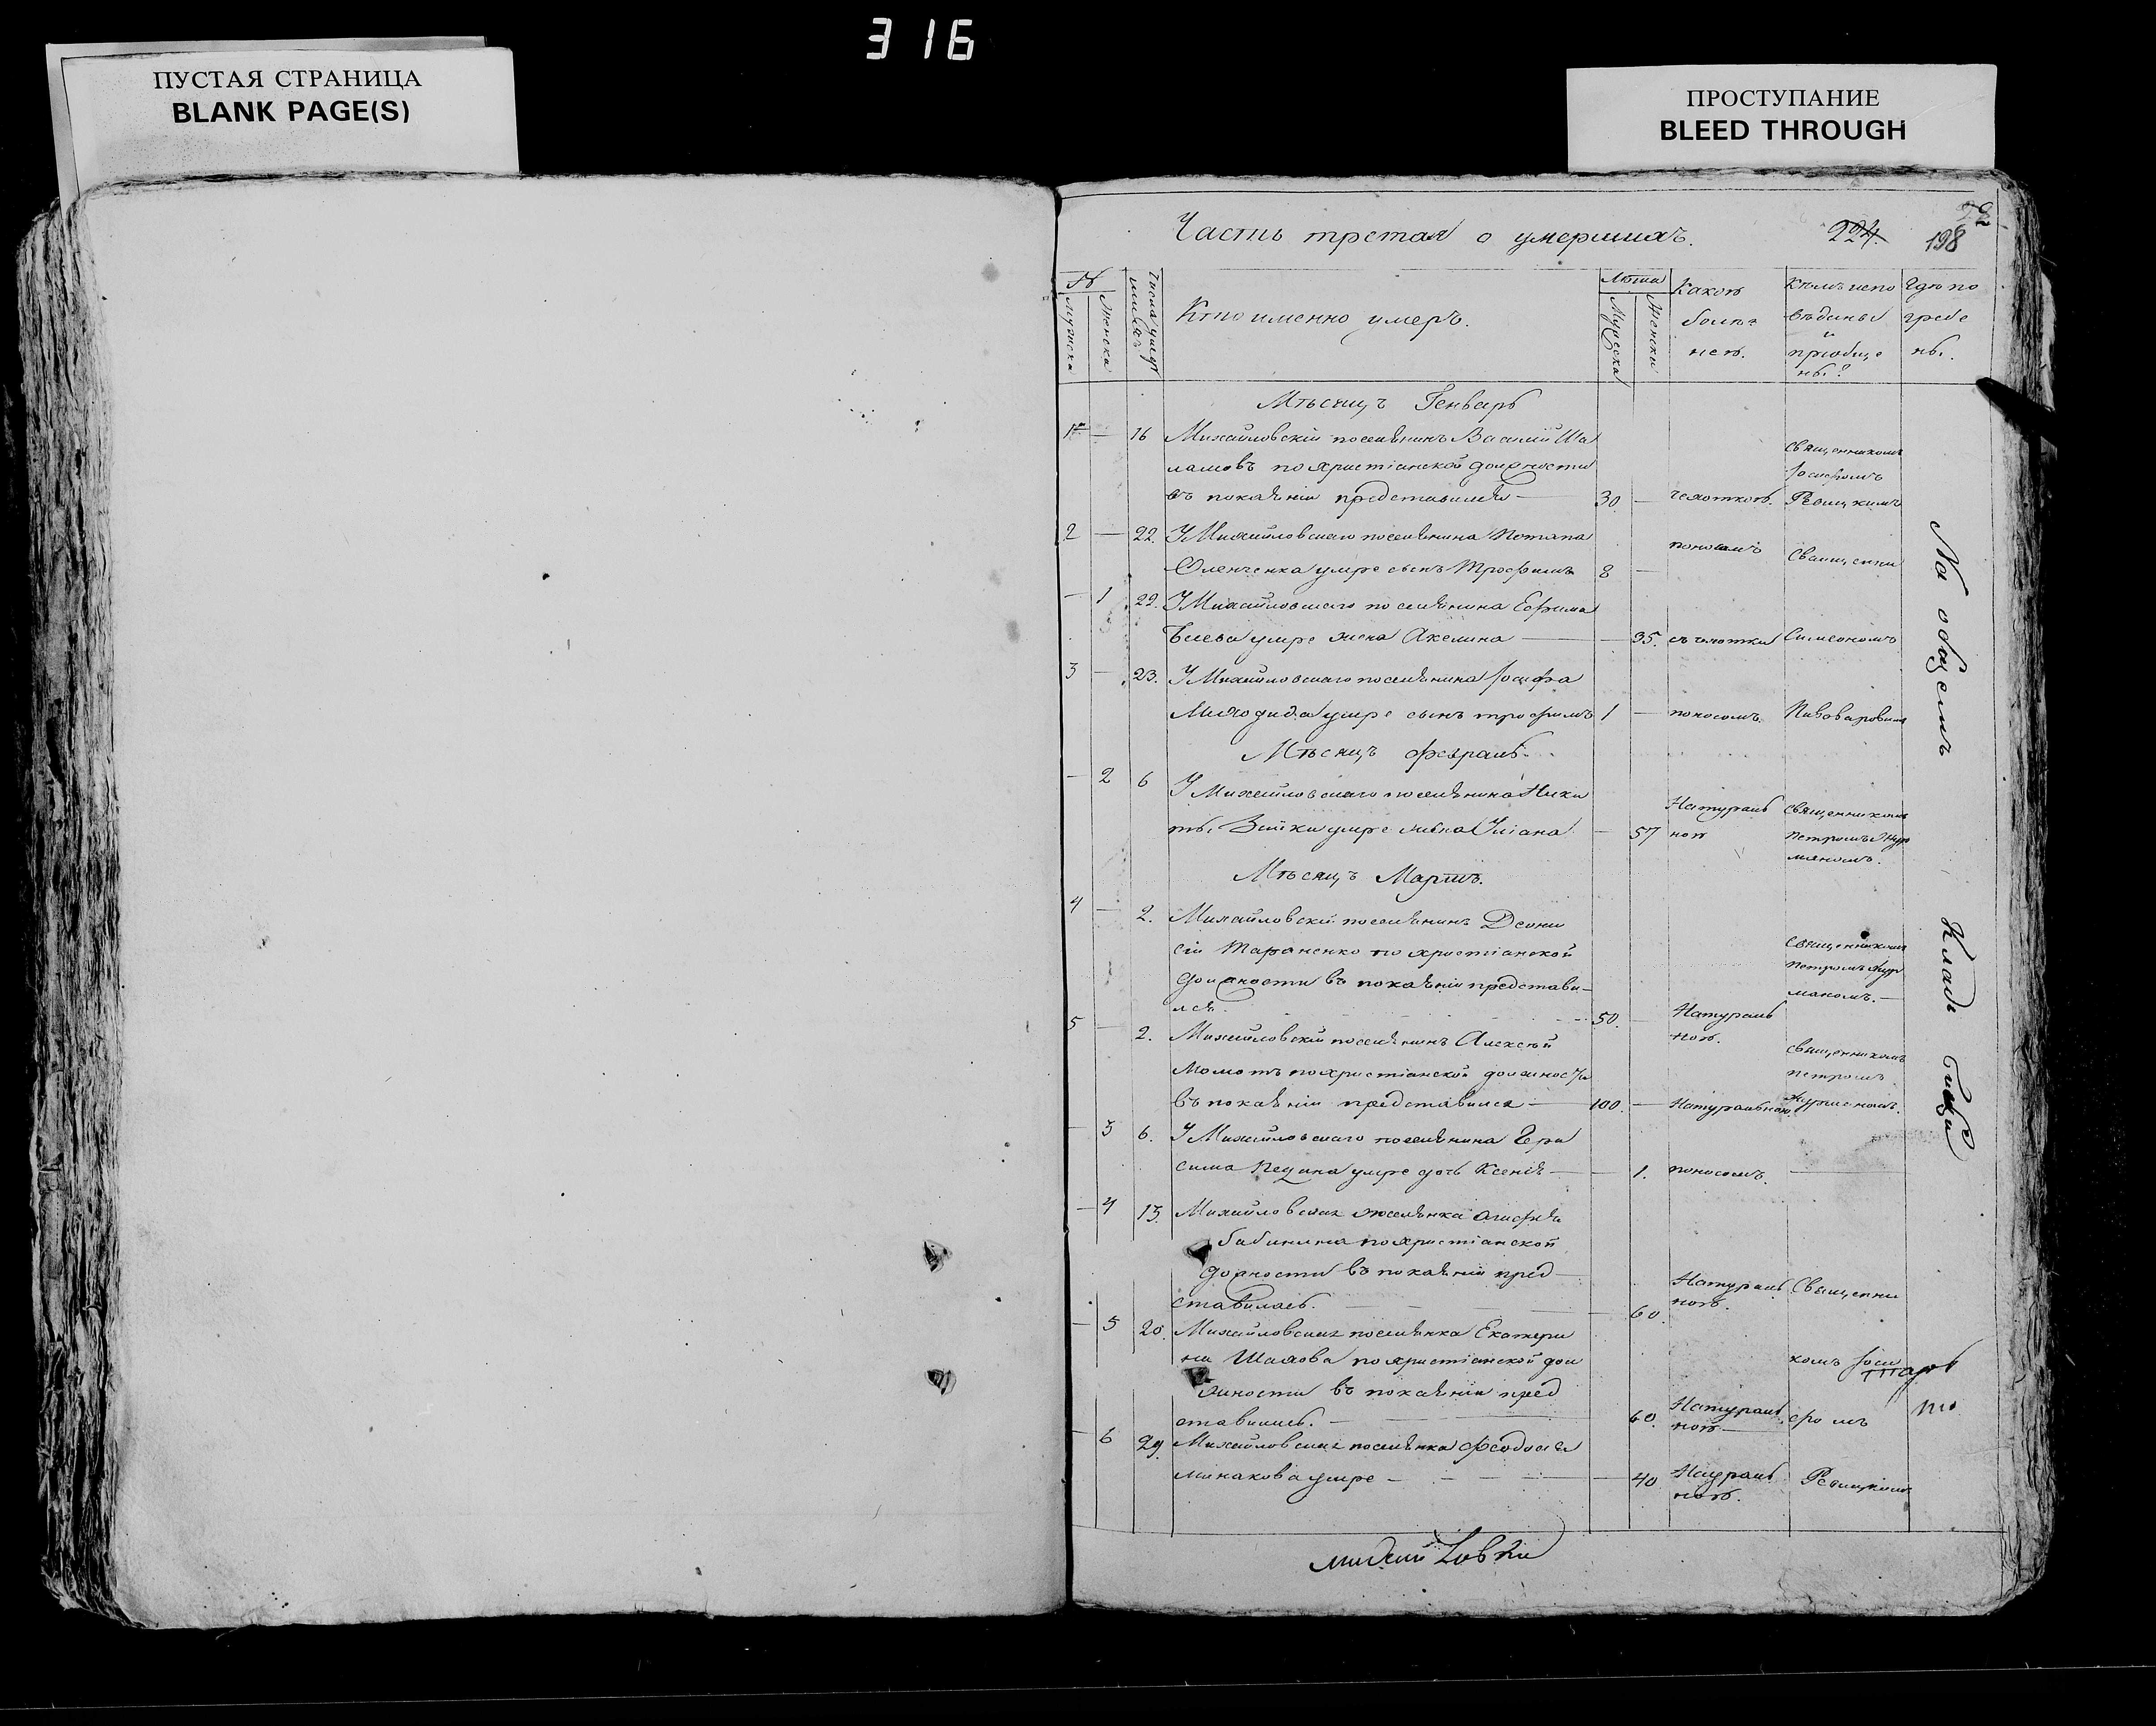 316
ПУСТАЯ СТРАНИЦА
BLANK PAGE(S)
ПРОСТУПАНИЕ
BLEED THROUGH
22
Часть третая о умершихъ.
224 198
№
Мужеска
Женска
Кто именно умеръ.
Лѣта
Мужеска
Женска
Какою болѣз нею.
Кѣмъ испо вѣданы и приобще ны?
Где по гребе ны.
Мѣсяцъ Генварь
1 — 16 Михайловскій поселянинъ Василій Ша
ламовъ по христіанской должности
въ покаяніи представился — 30. — чехоткою. Священникомъ Іосифомъ Ревицкимъ
2 — 22. У Михайловскаго поселянина Потапа
Оленченка умре сынъ Трофимъ 8 — поносомъ Священни
— 1 22. У Михайловскаго поселянина Ефима
умре жена Акелина — — 35. чехотки Симеономъ
3 — 23. У Михайловскаго поселянина Іосифа
умре сынъ трофимъ 1 — поносомъ. Пивоваровымъ
Мѣсяцъ февраль.
— 2 6 У Михайловскаго поселянина Ники
ты умре жена Уліана — 57 Натураль ною священникомъ петромъ
Мѣсяцъ Мартъ.
4 — 2. Михайловскій поселянинъ Деони
сій Тараненко по христіанской
должности въ покаяніи представи-
лся. 50. — Натураль ною. священникомъ петромъ
5 — 2. Михайловскій поселянинъ Алексѣй
Момотъ по христіанской должности
въ покаяніи представился — 100. — Натуральною. священникомъ петромъ
— 3 6. У Михайловскаго поселянина Гера
сима умре дочь Ксенія — — 1. поносомъ. —
— 4 13. Михайловская поселянка Агафія
бабинина по христіанской
должности въ покаяніи пред
ставилась. — 60. Натураль ною. Священни
— 5 20. Михайловская поселянка Екатери
на Шахова по христіанской дол
жности въ покаяніи пред
ставилась. — 60. Натураль ною комъ Іоси фомъ
— 6 29. Михайловская поселянка Феодосія
минакова умре — — 40 Натураль ною. Ревицкимъ
На общемъ Кладбищѣ